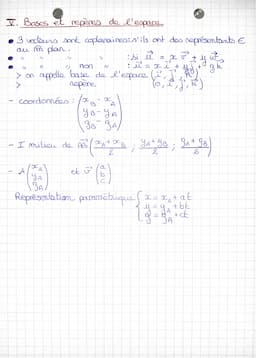 V. Bases et repères de l'espace
• 3 vecteurs sont coplanaires : s'ils ont des représentants ∈ au m̂ plan.
• " " " " : si u⃗ = x v⃗ + y w⃗
• " " " non " : u⃗ = x i⃗ + y j⃗ + z k⃗
> on appelle base de l'espace (i⃗, j⃗, k⃗)
> " repère " (O, i⃗, j⃗, k⃗)
- coordonnées : (x_B - x_A
y_B - y_A
z_B - z_A)
- I milieu de AB (x_A + x_B / 2 ; y_A + y_B / 2 ; z_A + z_B / 2)
- A (x_A
y_A
z_A) et v⃗ (a
b
c)
Représentation paramétrique { x = x_A + at
y = y_A + bt
z = z_A + ct